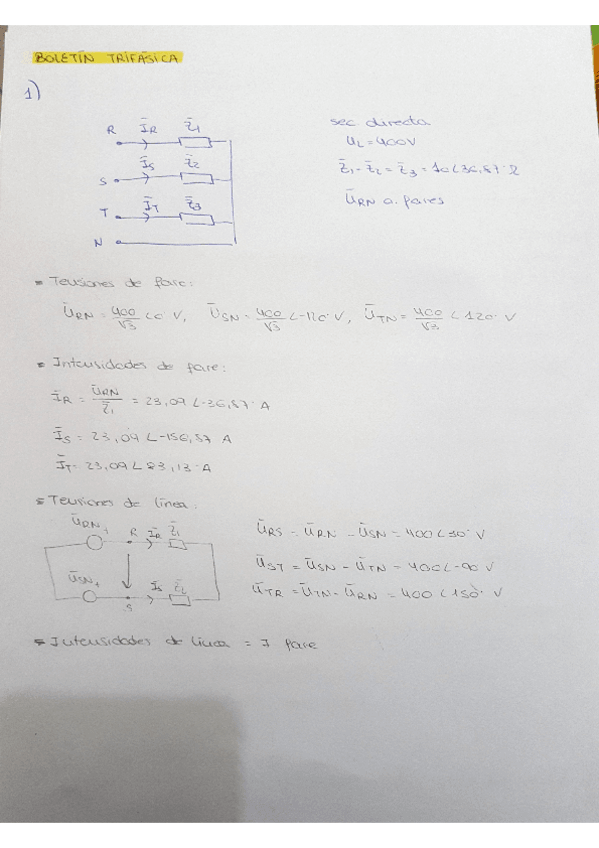 BOLETÍN TRIFÁSICA
1)
R I̅R Z̅1
S I̅S Z̅2
T I̅T Z̅3
N
sec directa
UL = 400V
Z̅1 = Z̅2 = Z̅3 = 10∠36,87° Ω
U̅RN o. fares
* Tensiones de fase:
U̅RN = 400/√3 ∠0° V, U̅SN = 400/√3 ∠-120° V, U̅TN = 400/√3 ∠120° V
* Intensidades de fase:
I̅R = U̅RN/Z̅1 = 23,09 ∠-36,87° A
I̅S = 23,09 ∠-156,87 A
I̅T = 23,09 ∠83,13° A
* Tensiones de línea:
U̅RN + R I̅R Z̅1
U̅SN + S I̅S Z̅2
U̅RS = U̅RN - U̅SN = 400∠30° V
U̅ST = U̅SN - U̅TN = 400∠-90 V
U̅TR = U̅TN - U̅RN = 400∠150° V
* Intensidades de línea = I fase